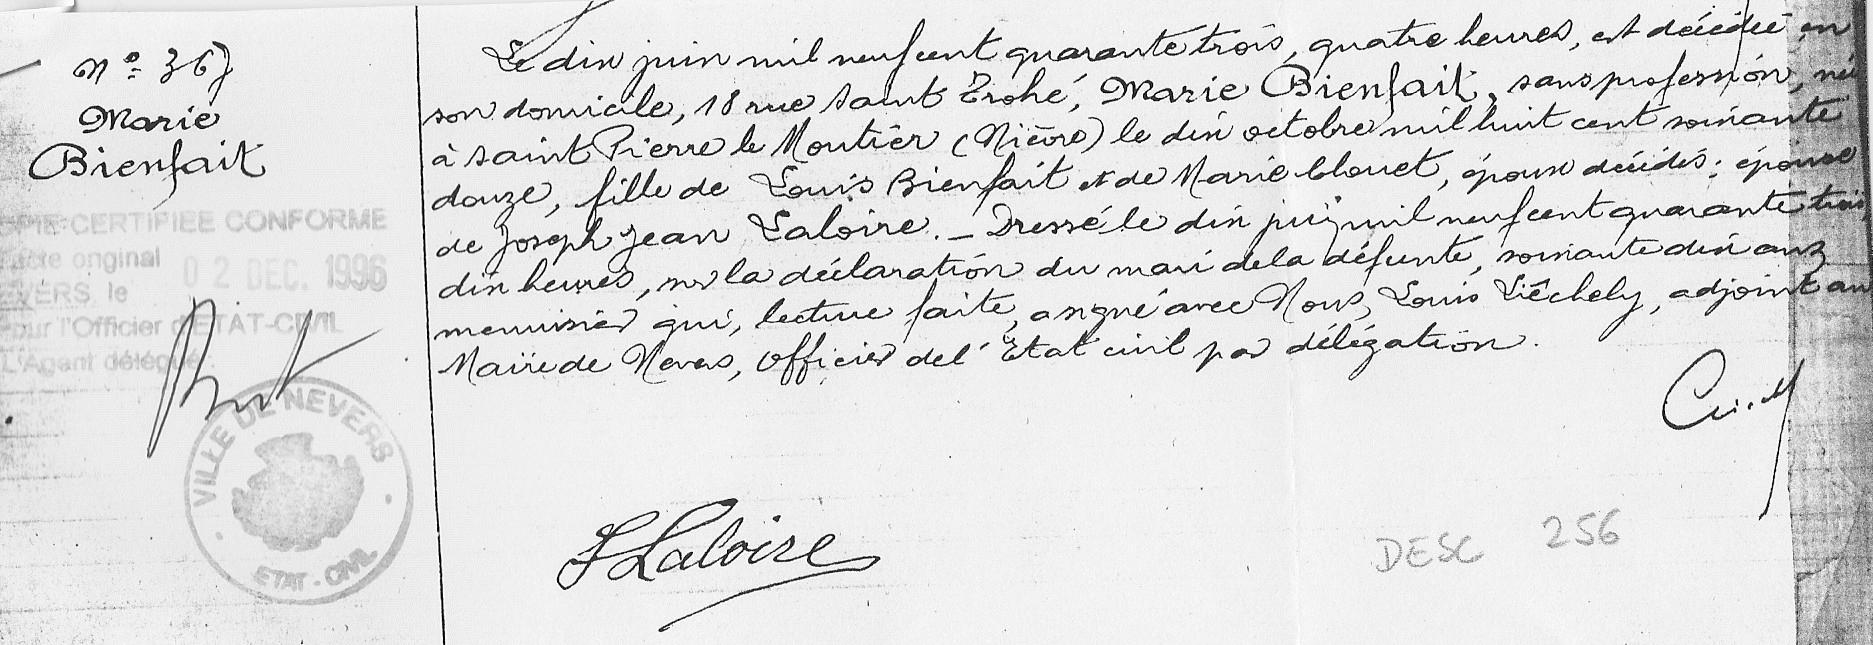 N° 367
Marie
Bienfait
COPIE CERTIFIEE CONFORME
l'acte original
NEVERS, le 02 DEC. 1996
Pour l'Officier d'ETAT-CIVIL
L'Agent délégué
VILLE DE NEVERS
ETAT-CIVIL
Le dix juin mil neuf cent quarante trois, quatre heures, est décédée en
son domicile, 18 rue Saint Trohé, Marie Bienfait, sans profession, née
à Saint Pierre le Moutier (Nièvre) le dix octobre mil huit cent soixante
douze, fille de Louis Bienfait et de Marie Clouet, époux décédés; épouse
de Joseph Jean Laloire. _ Dressé le dix juin mil neuf cent quarante trois
dix heures, sur la déclaration du mari de la défunte, soixante dix ans
menuisier qui, lecture faite, a signé avec Nous, Louis Liéchely, adjoint au
Maire de Nevers, Officier de l'Etat civil par délégation.
J Laloire
DESC 256